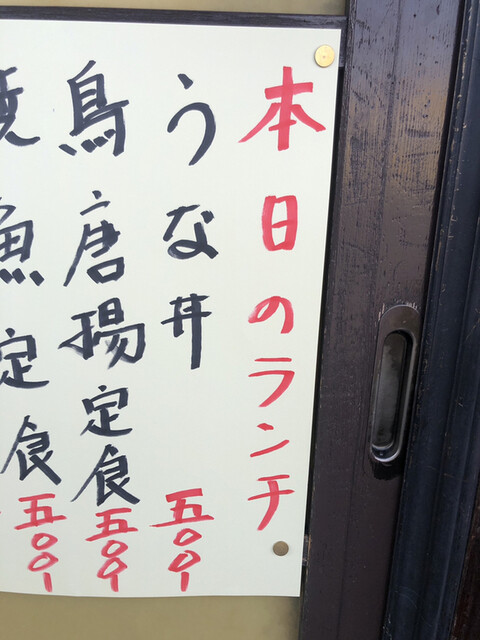 本日のランチ
うな丼 五〇〇ー
鳥唐揚定食 五〇〇ー
焼魚定食 五〇〇ー